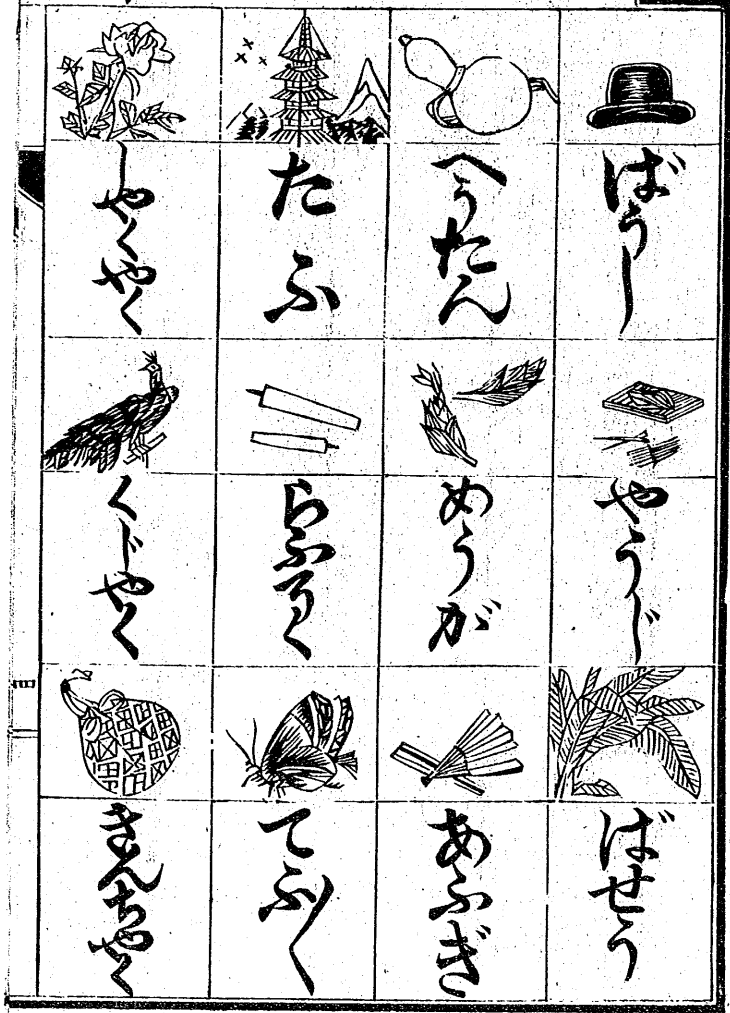 ばうし
やうじ
ばせう
へうたん
めうが
あふぎ
たふ
らふそく
てふ〳〵
しやくやく
くじやく
きんちやく